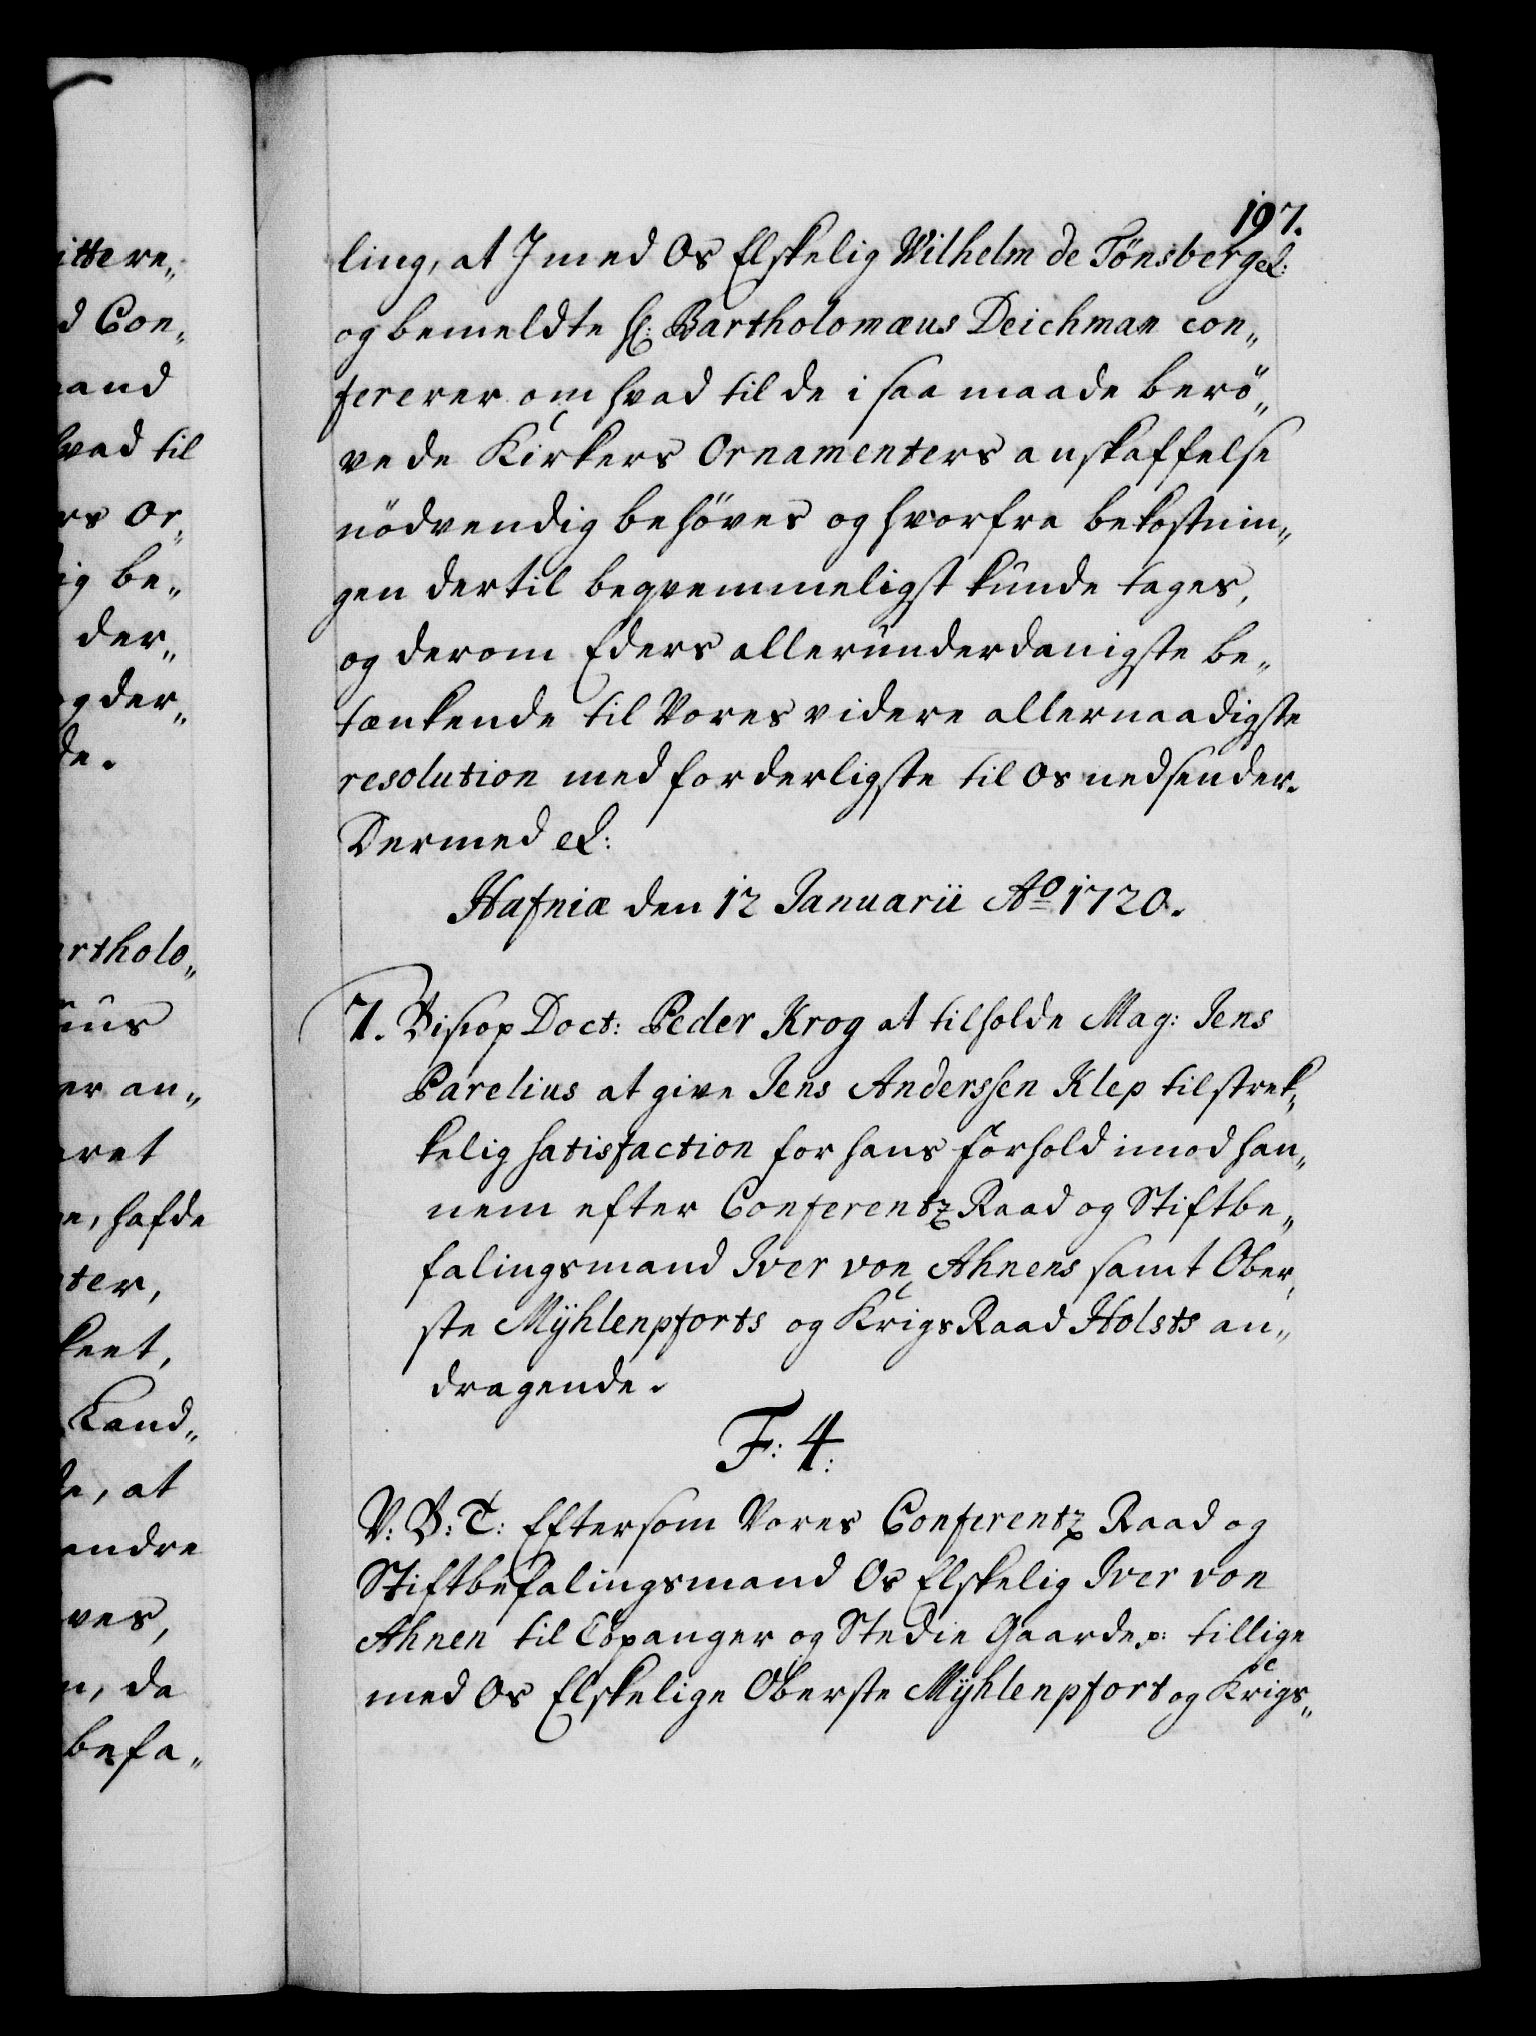 197.
ling, at J med Os Elskelig Wilhelm de Tönsberg etc:
og bemeldte Hr: Bartholomæus Deichman con„
fererer om hvad til de i saa maade berö„
vede Kirkers Ornamenters anskaffelse
nödvendig behöves og hvorfra bekostnin„
gen dertil beqvemmeligst kunde tages,
og derom Eders allerunderdanigste be„
tænkende til Vores videre allernaadigste
resolution med forderligste til Os nedsender.
Dermed etc:
Hafniæ den 12 Januarii Ao 1720.
7. Biscop Doct: Peder Krog at tilholde Mag: Jens
Parelius at give Jens Anderssen Klep tilstrek„
kelig satisfaction for hans forhold imod han„
nem efter Conferentz Raad og Stiftbe„
falingsmand Iver von Ahnens samt Ober„
ste Mÿhlenpforts og Krigs Raad Holsts an„
dragende.
F: 4:
V: B: T: Eftersom Vores Conferentz Raad og
Stiftbefalingsmand Os Elskelig Iver von
Ahnen til Copanger og Stedie Gaarde p: tillige
med Os Elskelige Oberste Mÿhlenpfort og Krigs„
itte re„
d Con„
and
hvad til
rs Or„
ig be„
der„
og der„
de.
artholo„
uus
er an„
aret
e, hafde
ter,
keet,
Land„
de, at
andre
ves,
n, da
befa„